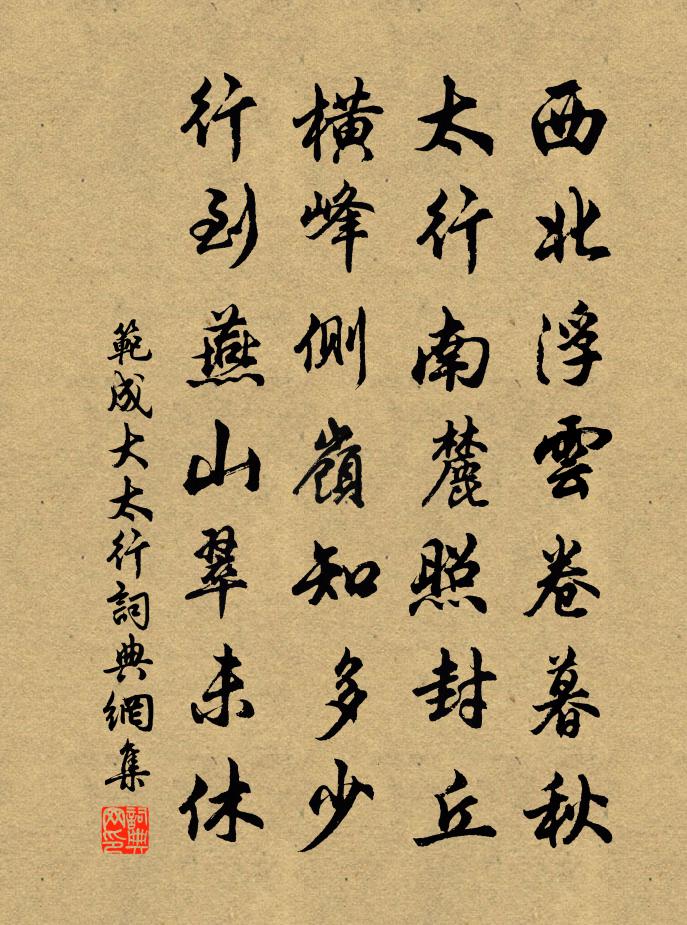 西北浮雲卷暮秋
太行南麓照封丘
橫峰側嶺知多少
行到燕山翠未休
範成大太行詞典網集
詞典网印